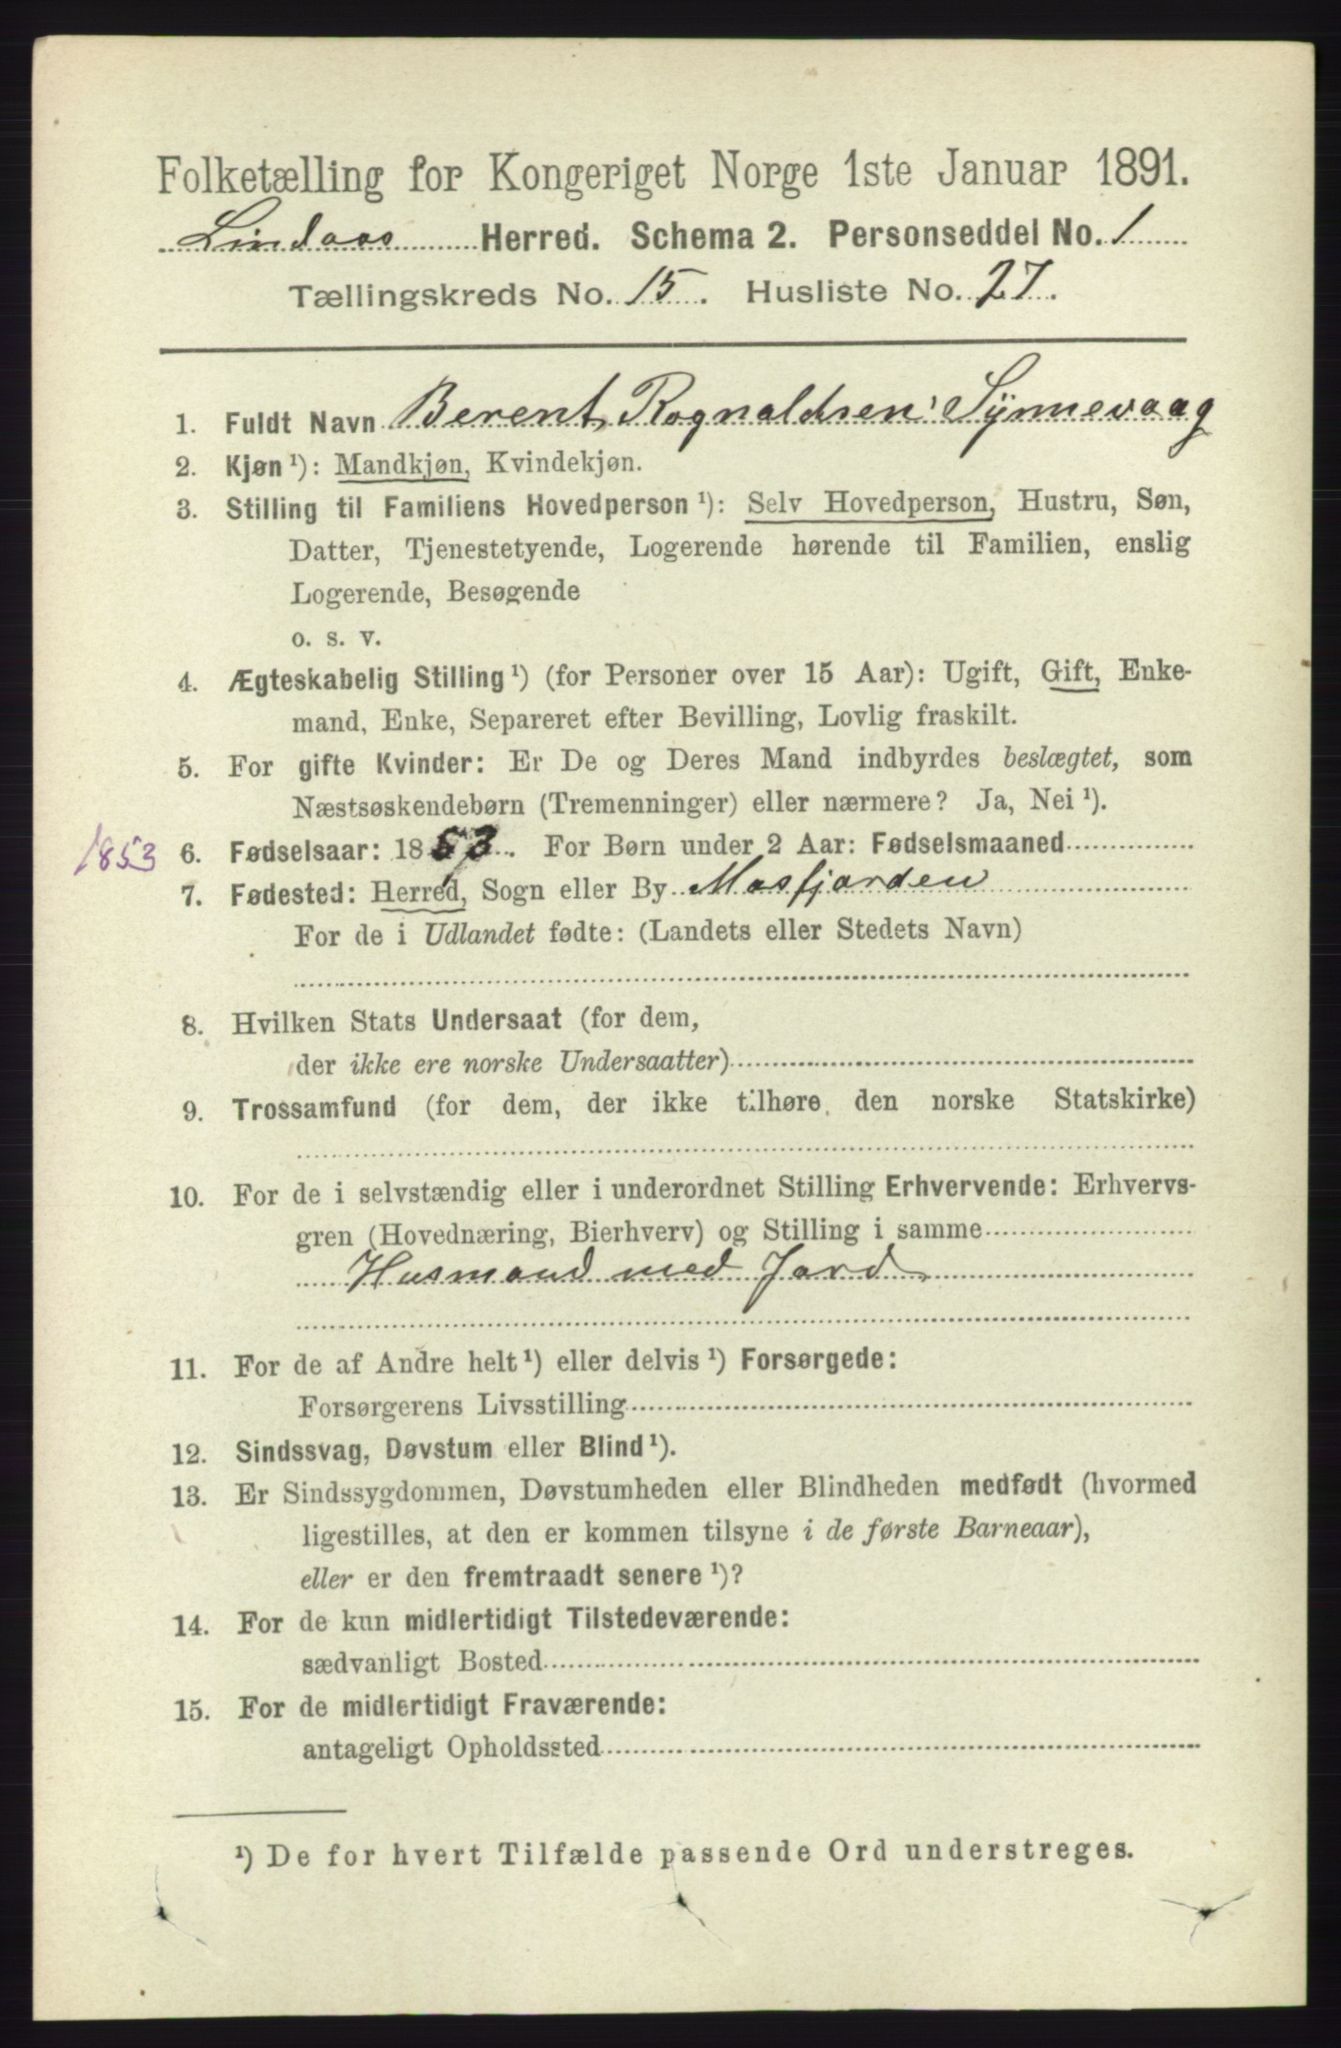 Folketælling for Kongeriget Norge 1ste Januar 1891.
Lindaas Herred. Schema 2. Personseddel No. 1
Tællingskreds No. 15. Husliste No. 27.
1. Fuldt Navn Berent Rognaldsen Synnevaag
2. Kjøn ¹): Mandkjøn, Kvindekjøn.
3. Stilling til Familiens Hovedperson ¹): Selv Hovedperson, Hustru, Søn,
Datter, Tjenestetyende, Logerende hørende til Familien, enslig
Logerende, Besøgende
o. s. v.
4. Ægteskabelig Stilling ¹) (for Personer over 15 Aar): Ugift, Gift, Enke-
mand, Enke, Separeret efter Bevilling, Lovlig fraskilt.
5. For gifte Kvinder: Er De og Deres Mand indbyrdes beslægtet, som
Næstsøskendebørn (Tremenninger) eller nærmere? Ja, Nei ¹).
1853 6. Fødselsaar: 1853. For Børn under 2 Aar: Fødselsmaaned
7. Fødested: Herred, Sogn eller By Masfjorden
For de i Udlandet fødte: (Landets eller Stedets Navn)
8. Hvilken Stats Undersaat (for dem,
der ikke ere norske Undersaatter)
9. Trossamfund (for dem, der ikke tilhøre den norske Statskirke)
10. For de i selvstændig eller i underordnet Stilling Erhvervende: Erhvervs-
gren (Hovednæring, Bierhverv) og Stilling i samme
Husmand med Jord
11. For de af Andre helt ¹) eller delvis ¹) Forsørgede:
Forsørgerens Livsstilling
12. Sindssvag, Døvstum eller Blind ¹).
13. Er Sindssygdommen, Døvstumheden eller Blindheden medfødt (hvormed
ligestilles, at den er kommen tilsyne i de første Barneaar),
eller er den fremtraadt senere ¹)?
14. For de kun midlertidigt Tilstedeværende:
sædvanligt Bosted
15. For de midlertidigt Fraværende:
antageligt Opholdssted
¹) De for hvert Tilfælde passende Ord understreges.